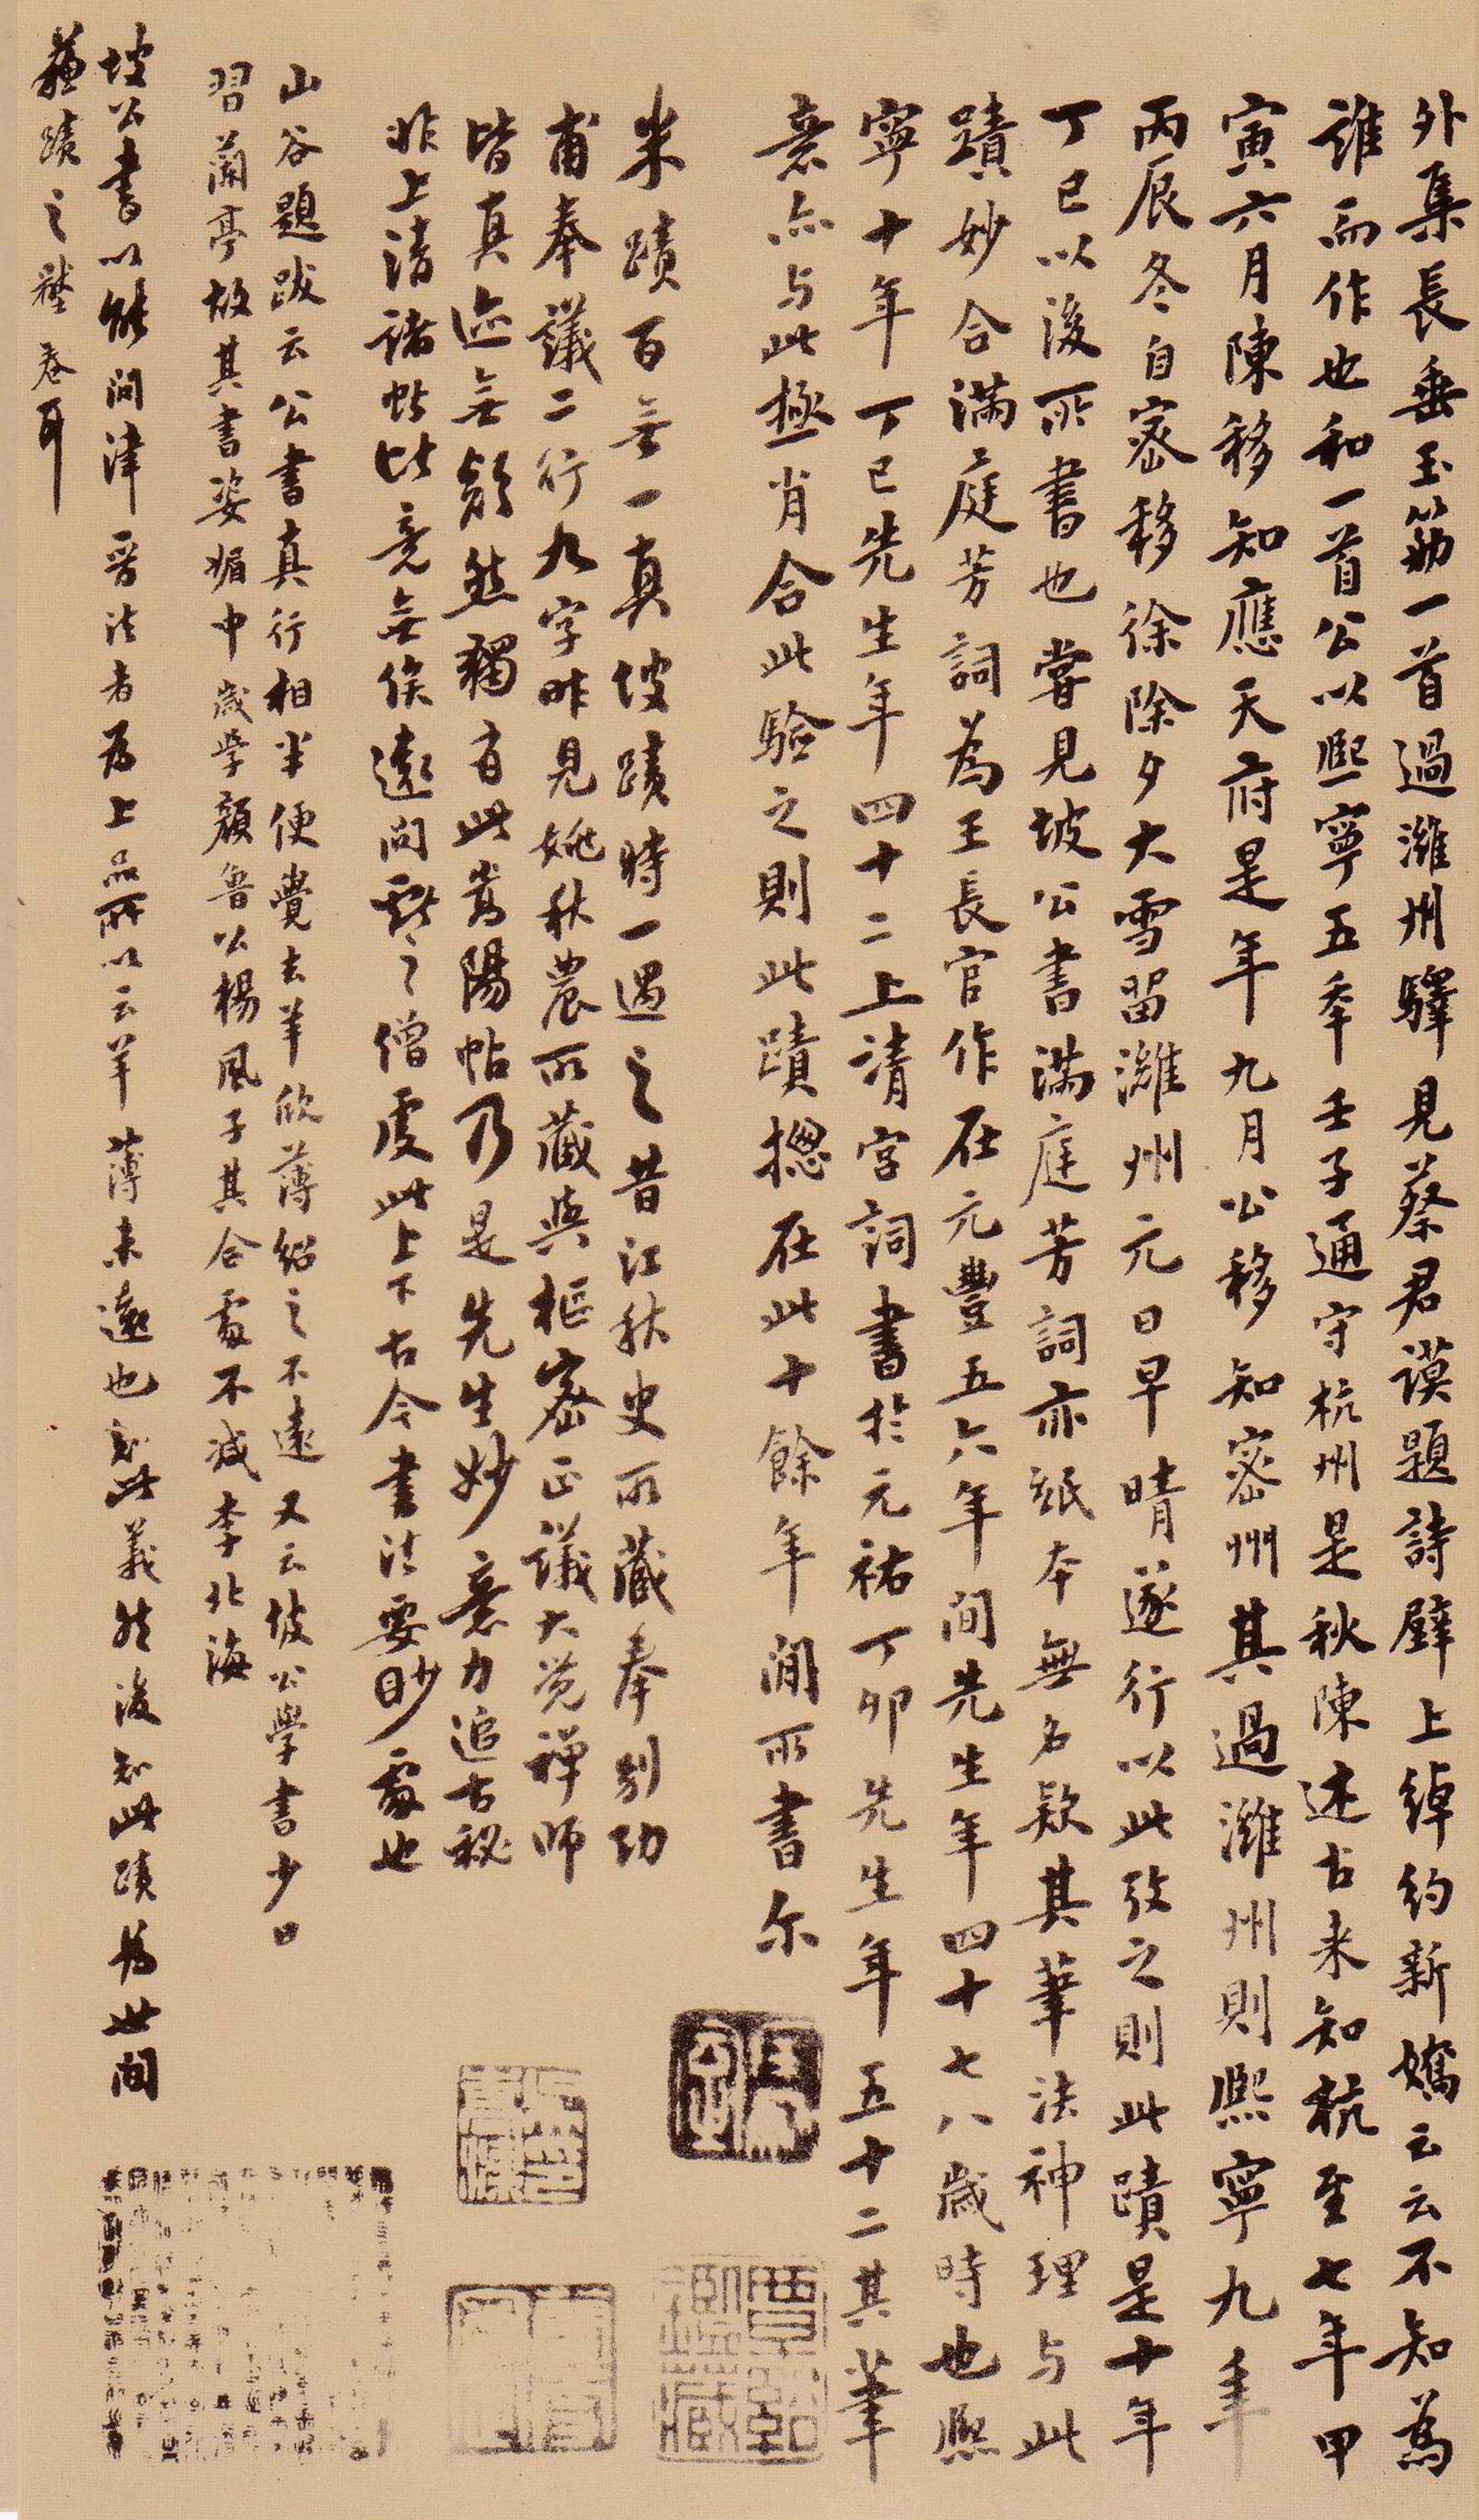 外集長垂玉筯一首過濰州驛見蔡君謨題詩壁上綽約新嬌云云不知為
誰而作也和一首公以熙寧五季壬子通守杭州是秋陳述古来知杭至七年甲
寅六月陳移知應天府是年九月公移知密州其過濰州則熙寧九年
丙辰冬自密移徐除夕大雪留濰州元日早晴遂行以此攷之則此蹟是十年
丁巳以後所書也嘗見坡公書滿庭芳詞亦紙本無名款其筆法神理与此
蹟妙合滿庭芳詞為王長官作在元豐五六年間先生年四十七八歲時也熙
寧十年丁巳先生年四十二上清宮詞書於元祐丁卯先生年五十二其筆
意亦与此極肖合此驗之則此蹟摠在此十餘年間所書尔
米蹟百無一真坡蹟時一遇之昔江秋史所藏奉別功
甫奉議二行九字昨見姚秋農所藏與樞密正議大覺禪師
皆真迹無疑然獨有此嵩陽帖乃是先生妙意力追古秘
非上清諸帖比竟無俟遠問靈之僧虔此上下古今書法要眇處也
山谷題跋云公書真行相半便覺去羊欣薄紹之不遠又云坡公學書少日
習蘭亭故其書姿媚中歲學顏魯公楊風子其合處不減李北海
坡公書以能問津晉法者為上品所以云羊薄未遠也知此義然後知此蹟為世間
蘇蹟之壓卷耳
覃谿鑑藏